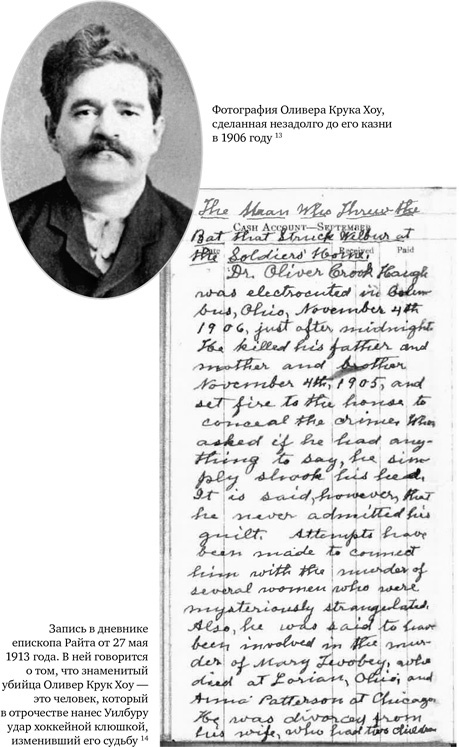 Фотография Оливера Крука Хоу,
сделанная незадолго до его казни
в 1906 году 13
The Man Who Threw the
CASH ACCOUNT—SEPTEMBER
Bat that Struck Wilbur at
Date Received Paid
the Soldiers' Home.
Dr. Oliver Crook Haugh
was electrocuted in Colum-
bus, Ohio, November 4th
1906, just after midnight
He killed his father and
mother and brother
November 4th, 1905, and
set fire to the house to
conceal the crime. When
asked if he had any-
thing to say, he sim-
ply shook his head.
It is said, however, that
he never admitted his
guilt. Attempts have
been made to connect
him with the murder of
several women who were
mysteriously strangulated.
Also, he was said to have
been involved in the mur-
der of Mary Twohey, who
died at Lorian, Ohio, and
Anna Patterson at Chicago.
He was divorced from
his wife, who had two children
Запись в дневнике
епископа Райта от 27 мая
1913 года. В ней говорится
о том, что знаменитый
убийца Оливер Крук Хоу —
это человек, который
в отрочестве нанес Уилбуру
удар хоккейной клюшкой,
изменивший его судьбу 14